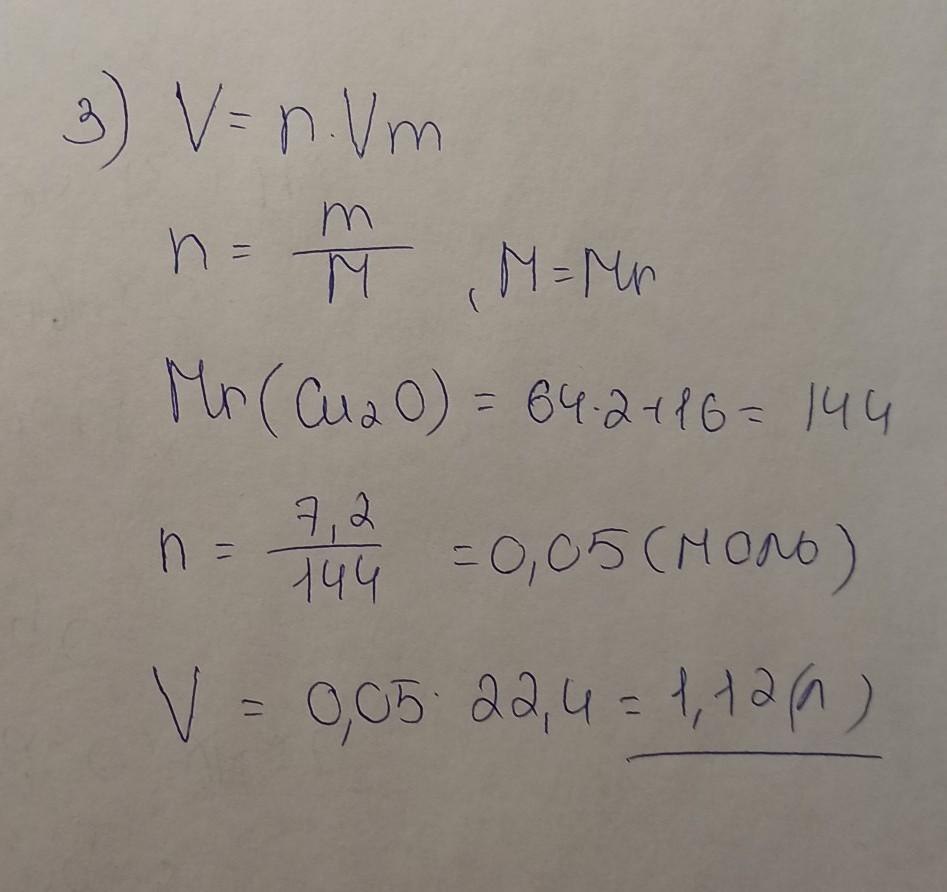 3) V = n · Vm
n = m/M , M = Mr
Mr(Cu₂O) = 64·2+16 = 144
n = 7,2/144 = 0,05 (моль)
V = 0,05 · 22,4 = 1,12 (л)